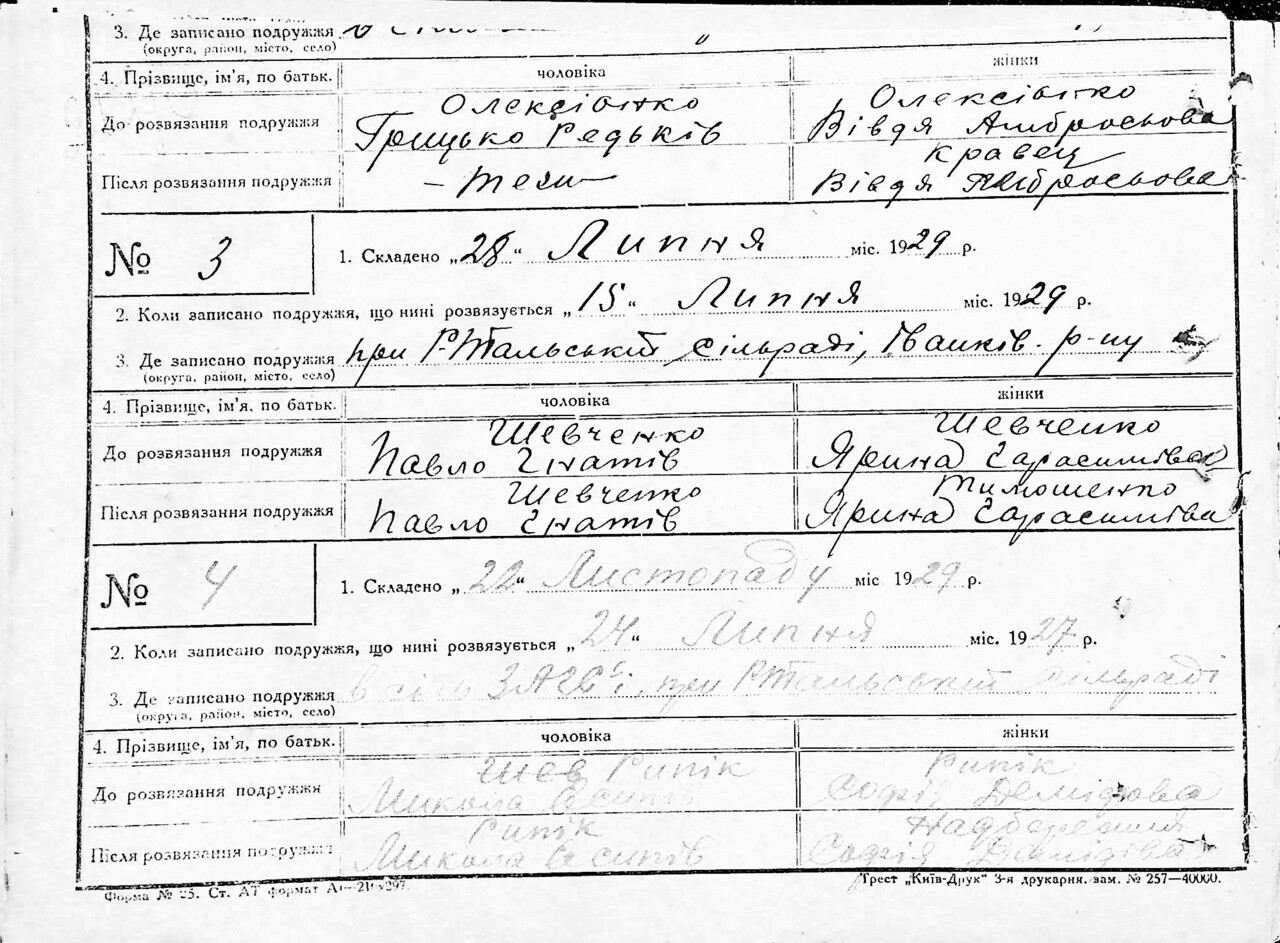 3. Де записано подружжя
(округа, район, місто, село)
4. Прізвище, ім'я, по батьк. чоловіка жінки
Олексієнко Олексієнко
До розвязання подружжя Грицько Редьків Вівдя Амбросьова
Кравец
Після розвязання подружжя — теж — Вівдя Амбросьова
№ 3 1. Складено „28" Липня міс. 1929 р.
2. Коли записано подружжя, що нині розвязується „15" Липня міс. 1929 р.
3. Де записано подружжя при Р-Тальський сільраді, Іванків. р-ну
(округа, район, місто, село)
4. Прізвище, ім'я, по батьк. чоловіка жінки
Шевченко Шевченко
До розвязання подружжя Павло Гнатів Ярина Гарасимівва
Шевченко Тимошенко
Після розвязання подружжя Павло Гнатів Ярина Гарасиміва
№ 4 1. Складено „22" Листопаду міс 1929 р.
2. Коли записано подружжя, що нині розвязується „24" Липня міс. 1927 р.
3. Де записано подружжя в сіль ЗАГС'і, при РТальський сільраді
(округа, район, місто, село)
4. Прізвище, ім'я, по батьк. чоловіка жінки
Шев Рипік Рипік
До розвязання подружжя Микола Осипів Софія Демідова
Рипік
Після розвязання подружжя Микола Осипів Софія Демидіва
Форма № 25. Ст. АТ формат А4—210×297. Трест „Київ-Друк" 3-я друкарня. зам. № 257—40000.